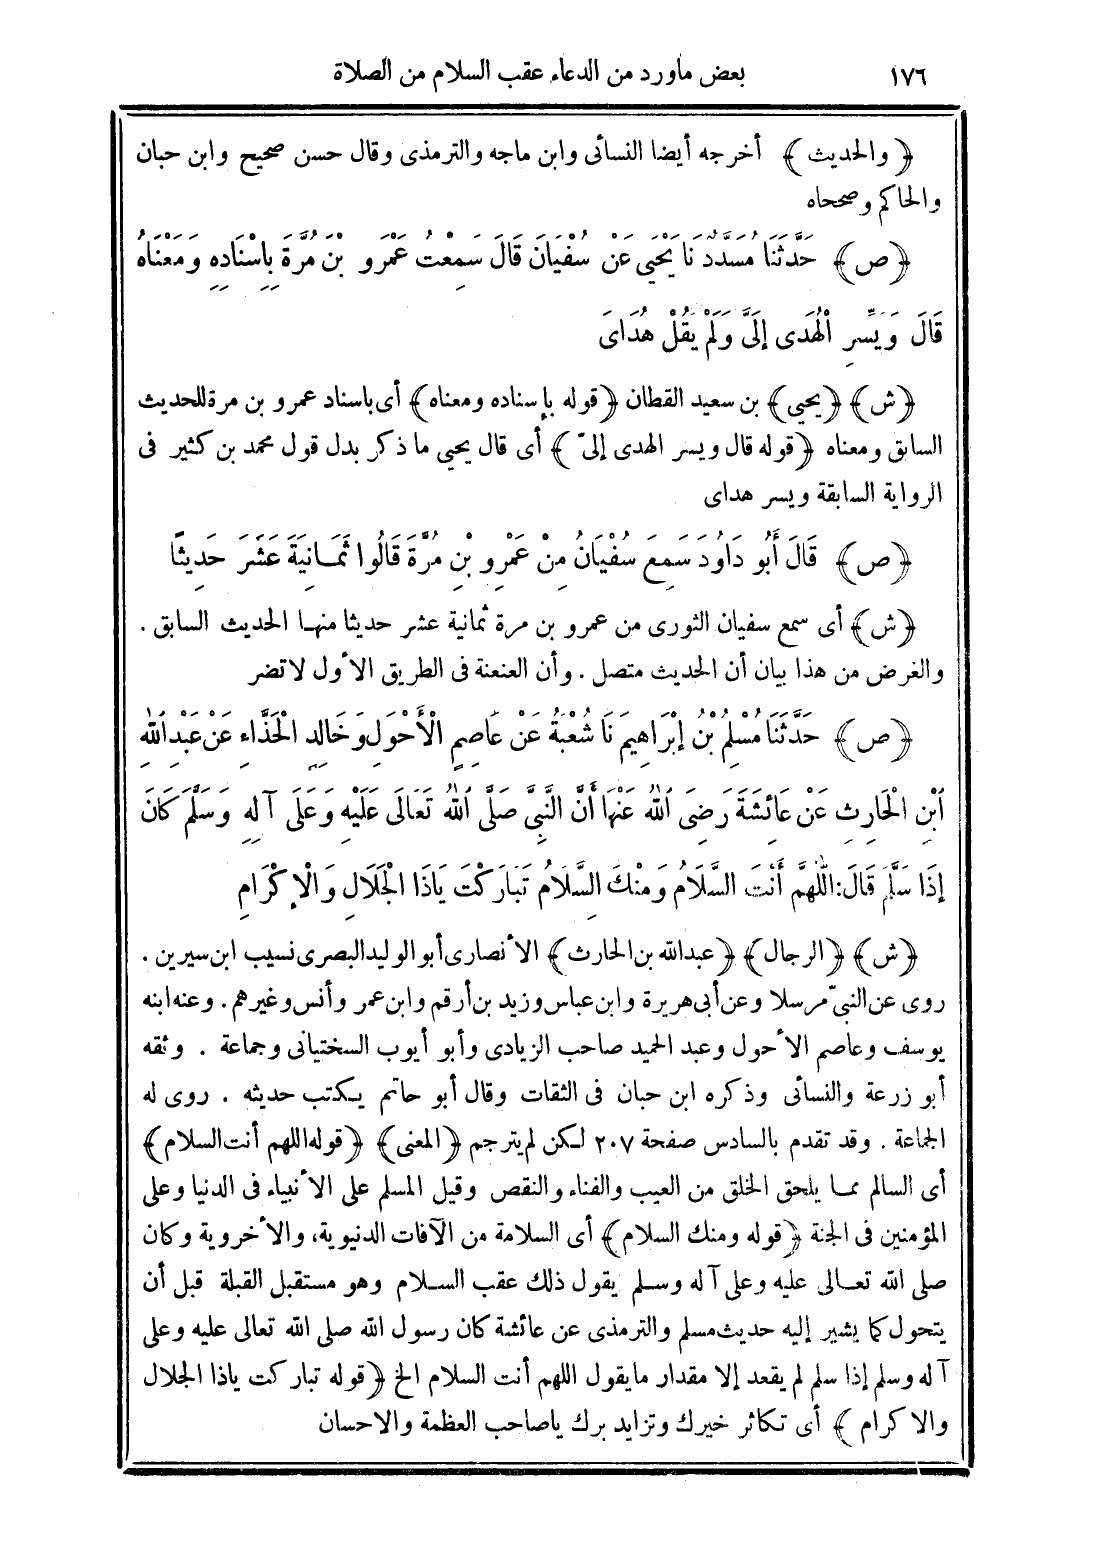 ١٧٦ بعض ماورد من الدعاء عقب السلام من الصلاة
﴿ والحديث ﴾ أخرجه أيضا النسائى وابن ماجه والترمذى وقال حسن صحيح وابن حبان
والحاكم وصححاه
﴿ ص ﴾ حَدَّثَنَا مُسَدَّدٌ نَا يَحْيَى عَنْ سُفْيَانَ قَالَ سَمِعْتُ عَمْرَو بْنَ مُرَّةَ بِإِسْنَادِهِ وَمَعْنَاهُ
قَالَ وَيَسِّرِ الْهُدَى إِلَىَّ وَلَمْ يَقُلْ هُدَاىَ
﴿ ش ﴾ ﴿ يحيى ﴾ بن سعيد القطان ﴿ قوله بإسناده ومعناه ﴾ أى باسناد عمرو بن مرة للحديث
السابق ومعناه ﴿ قوله قال ويسر الهدى إلىّ ﴾ أى قال يحيى ما ذكر بدل قول محمد بن كثير فى
الرواية السابقة ويسر هداى
﴿ ص ﴾ قَالَ أَبُو دَاوُدَ سَمِعَ سُفْيَانُ مِنْ عَمْرِو بْنِ مُرَّةَ قَالُوا ثَمَانِيَةَ عَشَرَ حَدِيثًا
﴿ ش ﴾ أى سمع سفيان الثورى من عمرو بن مرة ثمانية عشر حديثا منها الحديث السابق .
والغرض من هذا بيان أن الحديث متصل . وأن العنعنة فى الطريق الأول لاتضر
﴿ ص ﴾ حَدَّثَنَا مُسْلِمُ بْنُ إِبْرَاهِيمَ نَا شُعْبَةُ عَنْ عَاصِمٍ الْأَحْوَلِ وَخَالِدٍ الْحَذَّاءِ عَنْ عَبْدِ اللهِ
ابْنِ الْحَارِثِ عَنْ عَائِشَةَ رَضِىَ اللهُ عَنْهَا أَنَّ النَّبِىَّ صَلَّى اللهُ تَعَالَى عَلَيْهِ وَعَلَى آلِهِ وَسَلَّمَ كَانَ
إِذَا سَلَّمَ قَالَ: اللّٰهُمَّ أَنْتَ السَّلَامُ وَمِنْكَ السَّلَامُ تَبَارَكْتَ يَاذَا الْجَلَالِ وَالْإِكْرَامِ
﴿ ش ﴾ ﴿ الرجال ﴾ ﴿ عبدالله بن الحارث ﴾ الأنصارى أبو الوليد البصرى نسيب ابن سيرين .
روى عن النبىّ مرسلا وعن أبى هريرة وابن عباس وزيد بن أرقم وابن عمر وأنس وغيرهم . وعنه ابنه
يوسف وعاصم الأحول وعبد الحميد صاحب الزيادى وأبو أيوب السختيانى وجماعة . وثقه
أبو زرعة والنسائى وذكره ابن حبان فى الثقات وقال أبو حاتم يكتب حديثه . روى له
الجماعة . وقد تقدم بالسادس صفحة ٢٠٧ لكن لم يترجم ﴿ المعنى ﴾ ﴿ قوله اللهم أنت السلام ﴾
أى السالم مما يلحق الخلق من العيب والفناء والنقص وقيل المسلم على الأنبياء فى الدنيا وعلى
المؤمنين فى الجنة ﴿ قوله ومنك السلام ﴾ أى السلامة من الآفات الدنيوية، والأخروية وكان
صلى الله تعالى عليه وعلى آله وسلم يقول ذلك عقب السلام وهو مستقبل القبلة قبل أن
يتحول كما يشير إليه حديث مسلم والترمذى عن عائشة كان رسول الله صلى الله تعالى عليه وعلى
آله وسلم إذا سلم لم يقعد إلا مقدار مايقول اللهم أنت السلام الخ ﴿ قوله تباركت ياذا الجلال
والاكرام ﴾ أى تكاثر خيرك وتزايد برك ياصاحب العظمة والاحسان